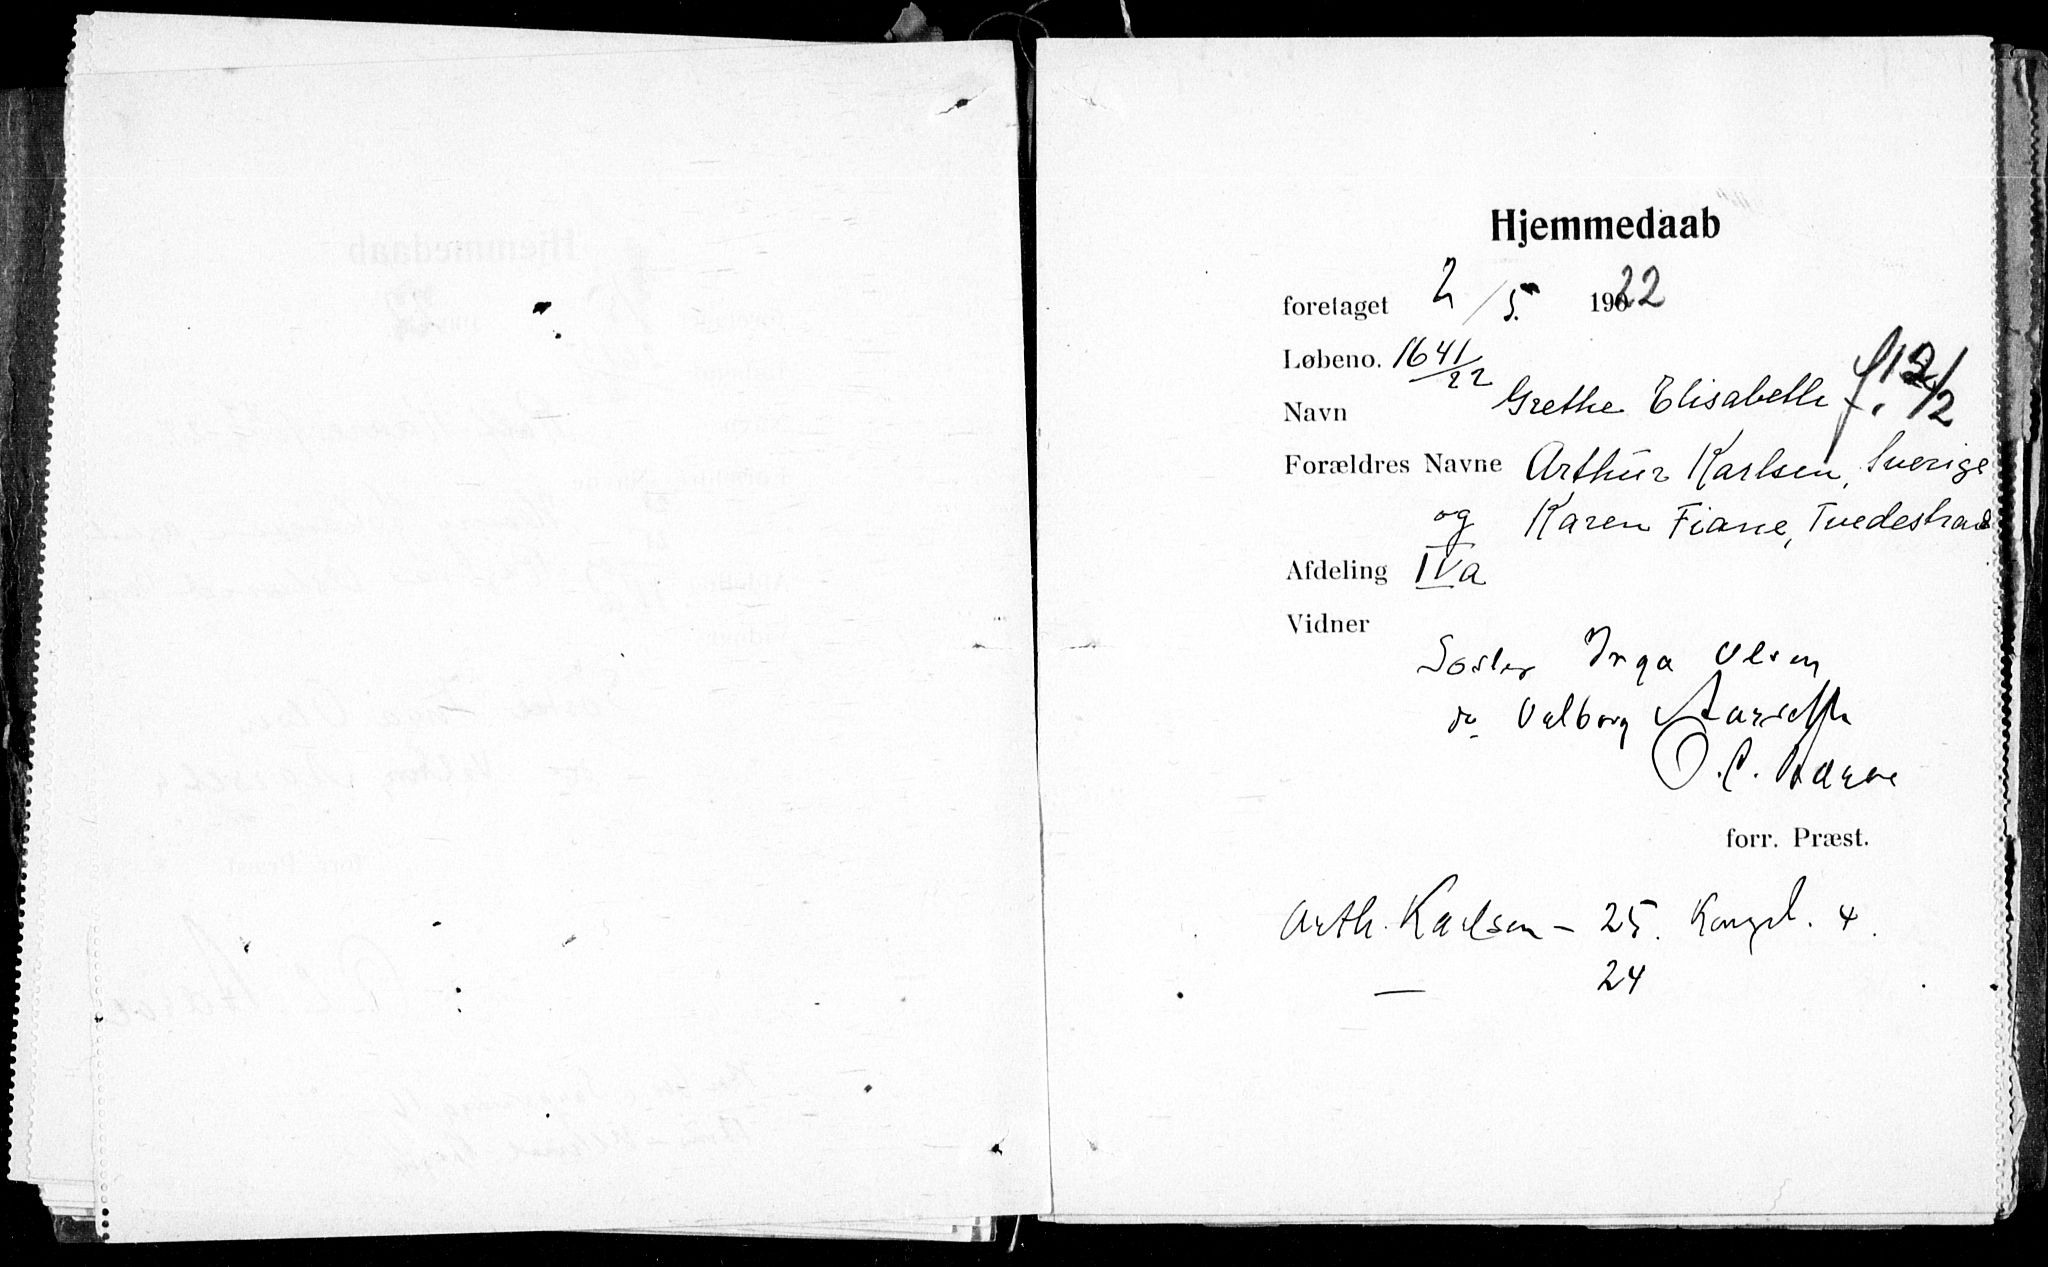 Hjemmedaab
foretaget 2/5. 1922
Løbeno. 1641/22
Navn Grethe Elisabeth f. 12/2
Forældres Navne Arthur Karlsen, Sverige
og Karen Fiane, Tvedestrand
Afdeling IVa
Vidner
Søster Inga Olsen
do Valborg
O. C.
forr. Præst.
Arth. Karlsen – 25. Kongsl. 4.
— 24